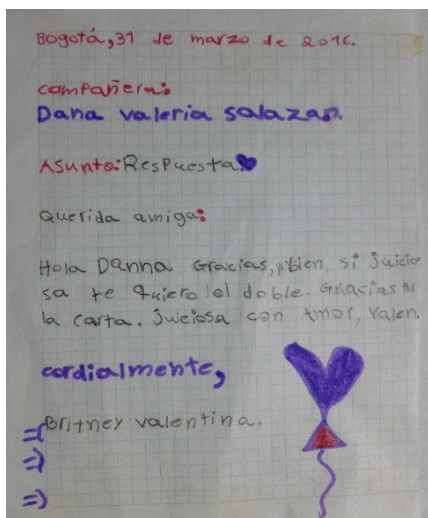 Bogotá, 31 de marzo de 2016.
compañera:
Dana valeria salazar.
Asunto: Respuesta
Querida amiga:
Hola Danna Gracias, bien, si juicio
sa te quiero el doble. Gracias por
la carta. Juiciosa con Amor, Valen.
cordialmente,
Britney valentina.
=(
=)
=)